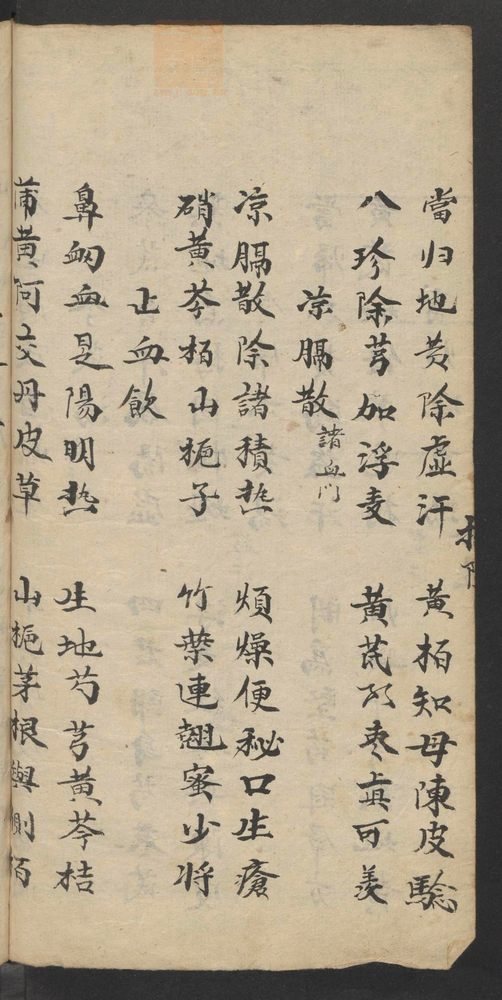 當归地黄除虛汗 黄栢知母陳皮驗
八珍除芎加浮麦 黄芪 枣真可羡
凉膈散 諸血门
凉膈散除諸積热 煩燥便秘口生瘡
硝黄芩栢山栀子 竹葉連翹蜜少将
止血飲
鼻衂血是陽明热 生地芍芎黄芩桔
蒲黄阿交丹皮草 山栀茅根與側栢